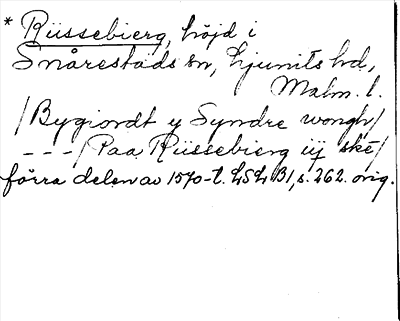 * Rüssebierg, höjd i
Snårestads sn, Ljunits hd,
Malm. l.
/Bygiordt y Syndre wongh/
---/Paa Rüssebierg üj ske/
förra delen av 1570-t. LSL B1, s. 262. orig.